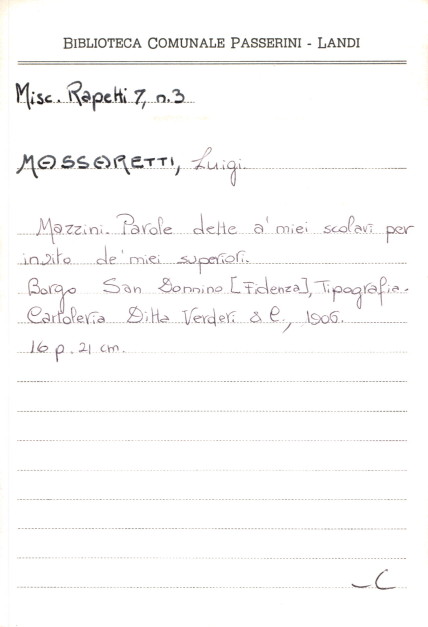 BIBLIOTECA COMUNALE PASSERINI - LANDI
Misc. Rapetti 7, n.3
MASSARETTI, Luigi.
Mazzini. Parole dette a' miei scolari per
invito de' miei superiori.
Borgo San Donnino [Fidenza], Tipografia-
Cartoleria Ditta Verderi & C., 1906.
16 p. 21 cm.